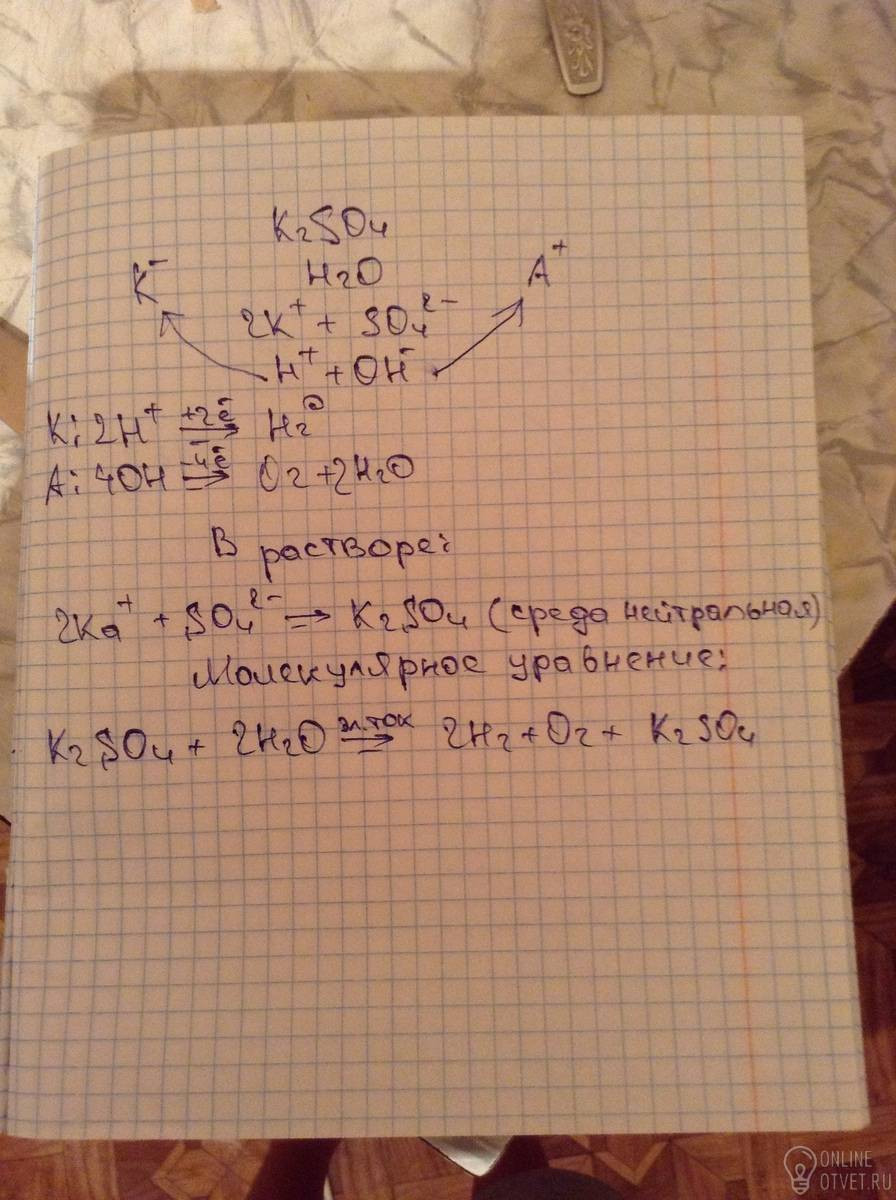 K₂SO₄
K⁻ H₂O A⁺
2K⁺ + SO₄²⁻
H⁺ + OH⁻
K: 2H⁺ +2e̅→ H₂⁰
A: 4OH⁻ -4e̅→ O₂ + 2H₂O
В растворе:
2Ka⁺ + SO₄²⁻ → K₂SO₄ (среда нейтральная)
Молекулярное уравнение:
K₂SO₄ + 2H₂O эл.ток→ 2H₂ + O₂ + K₂SO₄
ONLINE
OTVET.RU